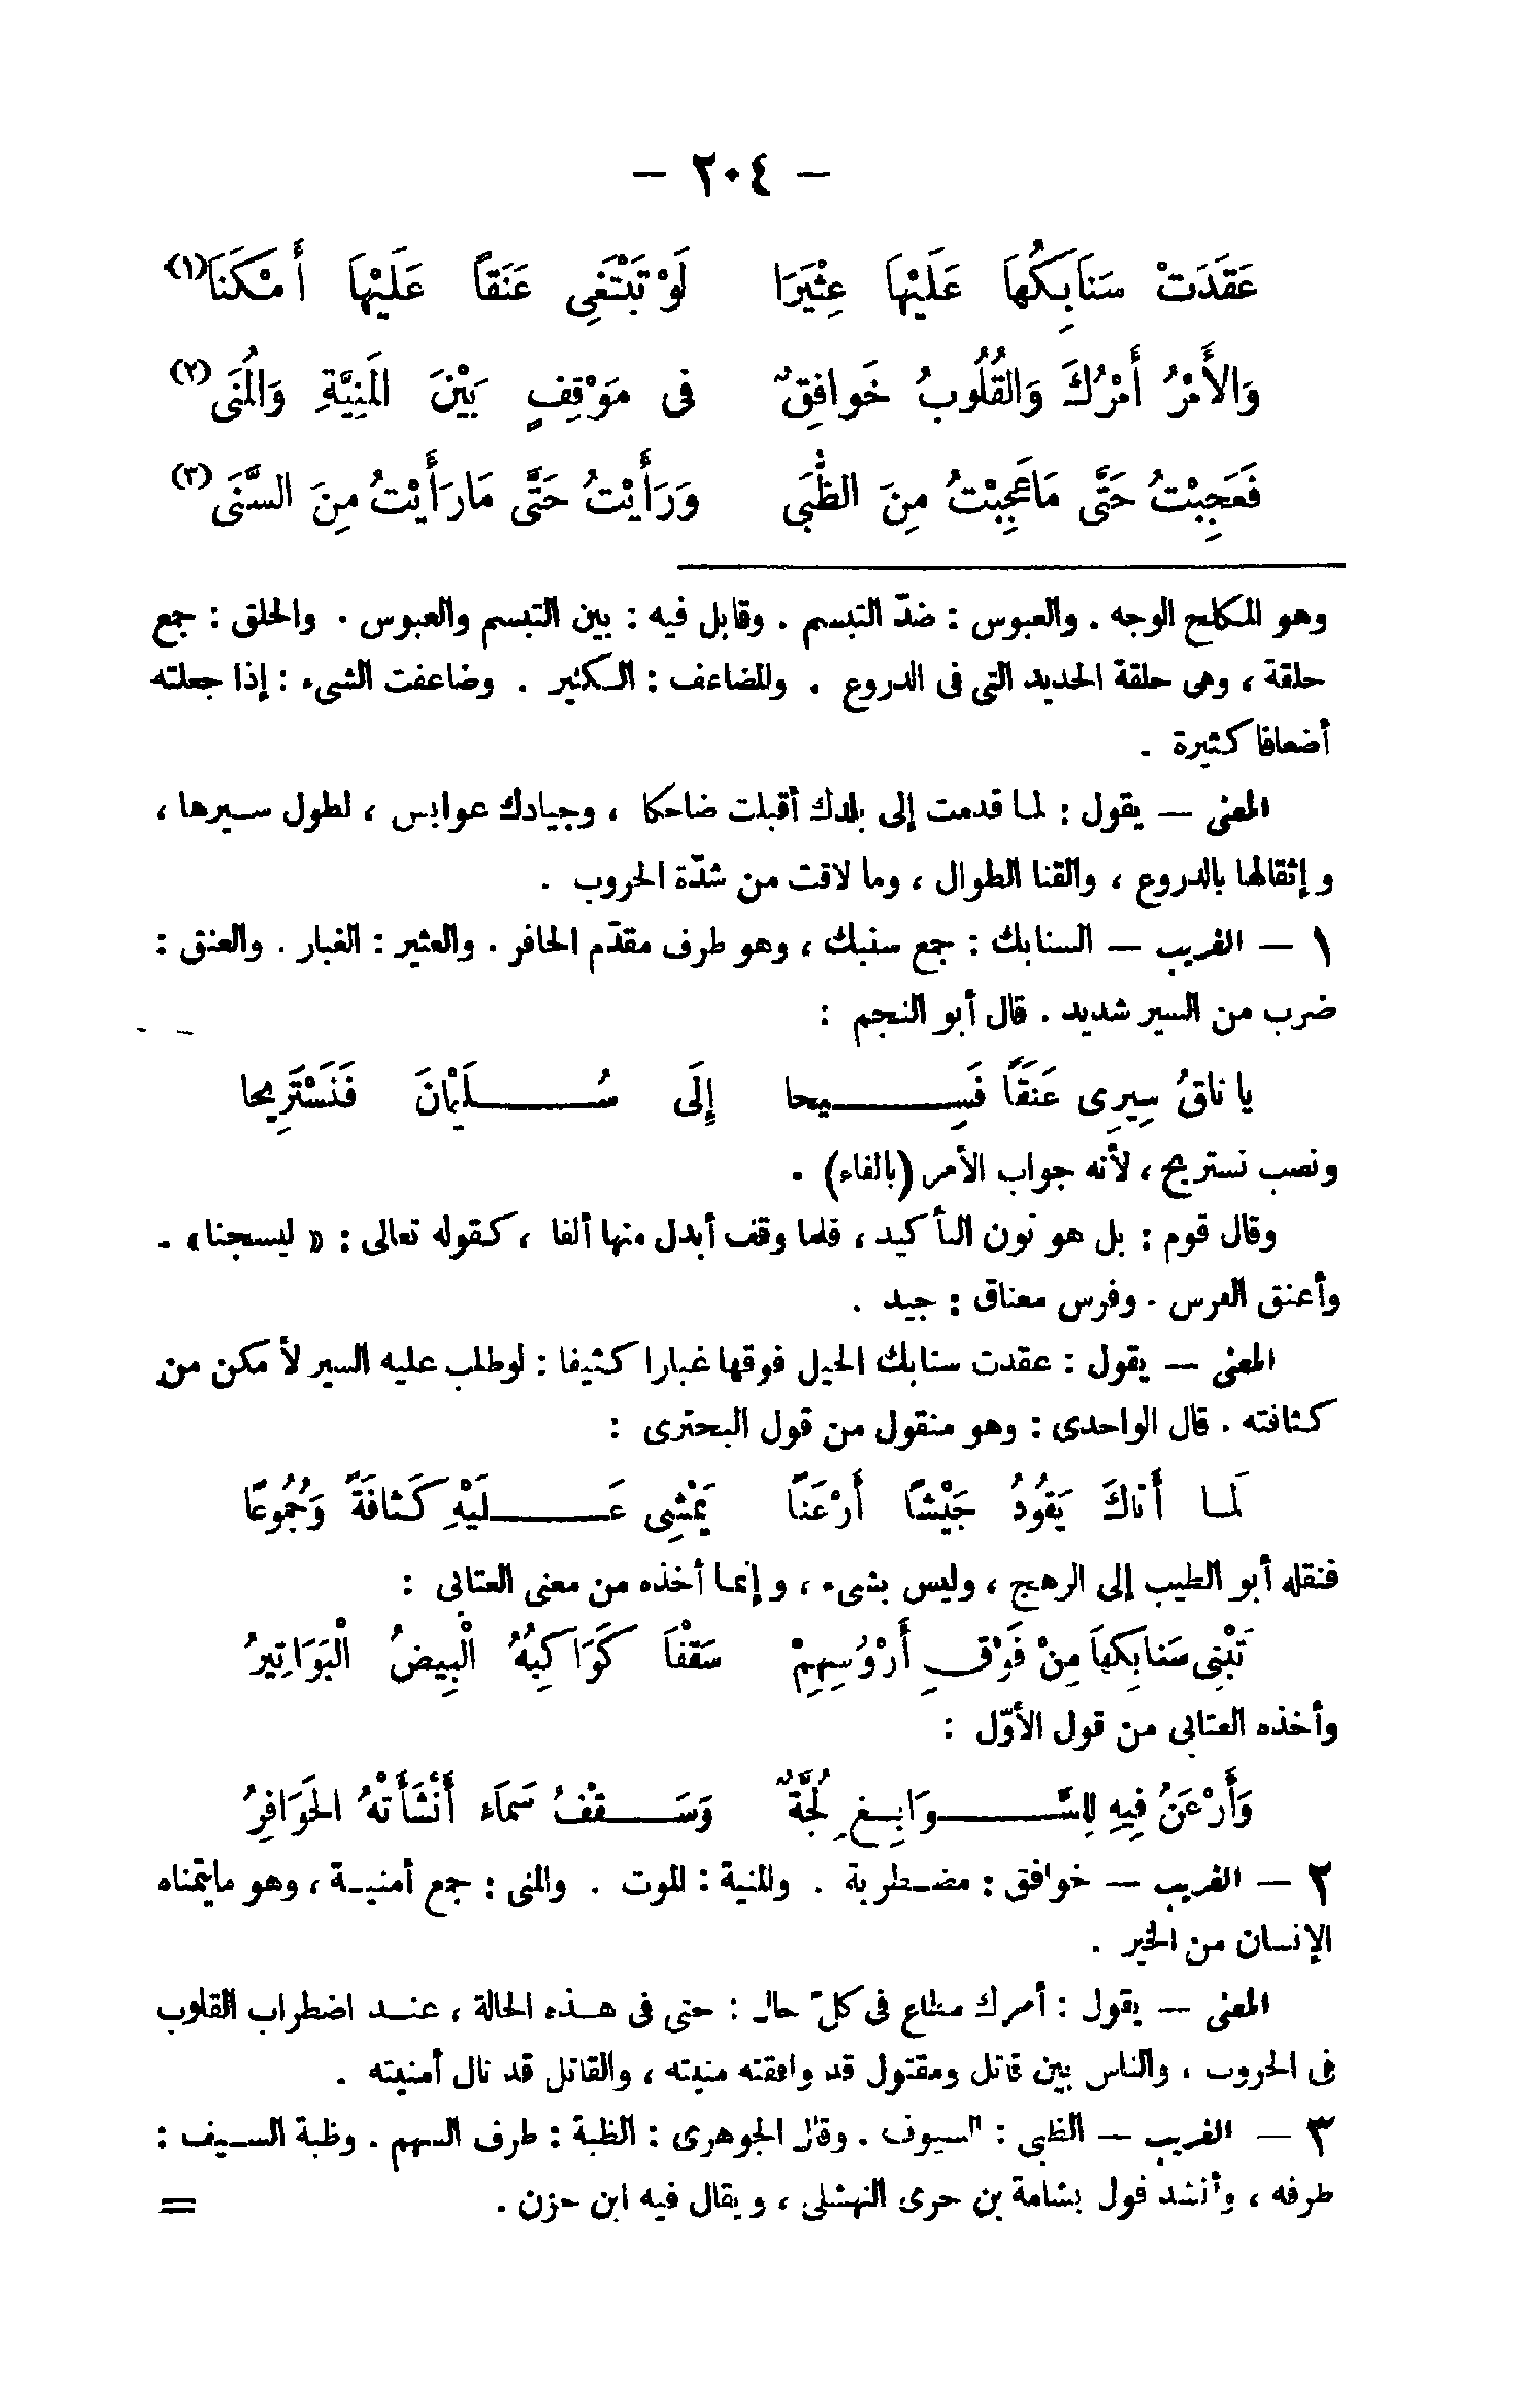 — ٢٠٤ —
عَقَدَتْ سَنَابِكُهَا عَلَيْهَا عِثْيَرَا لَوْ تَبْتَغِى عَنَقاً عَلَيْهَا أَمْكَنَا (١)
وَالأَمْرُ أَمْرُكَ وَالقُلُوبُ خَوافِقٌ فى مَوْقِفٍ بَيْنَ المَنِيَّةِ وَالمُنَى (٢)
فَعَجِبْتُ حَتَّى مَاعَجِبْتُ مِنَ الظُّبَى وَرَأَيْتُ حَتَّى مَارَأَيْتُ مِنَ السَّنَى (٣)
وهو المكلح الوجه . والعبوس : ضدّ التبسم . وقابل فيه : بين التبسم والعبوس . والحلق : جمع
حلقة ، وهى حلقة الحديد التى فى الدروع . والمضاعف : الكثير . وضاعفت الشىء : إذا جعلته
أضعافا كثيرة .
المعنى — يقول : لما قدمت إلى بلدك أقبلت ضاحكا ، وجيادك عوابس ، لطول سيرها ،
وإثقالها بالدروع ، والقنا الطوال ، وما لاقت من شدّة الحروب .
١ — الغريب — السنابك : جمع سنبك ، وهو طرف مقدّم الحافر . والعثير : الغبار . والعنق :
ضرب من السير شديد . قال أبو النجم :
يا ناقُ سِيرِى عَنَقَاً فَسِيحا إِلَى سُلَيْمانَ فَنَسْتَرِيحا
ونصب نستريح ، لأنه جواب الأمر (بالفاء) .
وقال قوم : بل هو نون التأكيد ، فلما وقف أبدل منها ألفا ، كقوله تعالى : « ليسجنا» .
وأعنق الفرس . وفرس معناق : جيد .
المعنى — يقول : عقدت سنابك الخيل فوقها غبارا كثيفا : لوطلب عليه السير لأمكن من
كثافته . قال الواحدى : وهو منقول من قول البحترى :
لَمـا أَتاكَ يَقُودُ جَيْشًا أَرْعَناً يَمْشِى عَلَيْهِ كَثافَةً وَجُمُوعًا
فنقله أبو الطيب إلى الرهج ، وليس بشىء ، وإنما أخذه من معنى العتابى :
تَبْنِى سَنابِكهاَ مِنْ فَوْقِ أَرْؤُسِهِمْ سَقْفاَ كَوَاكِبُهُ الْبِيضُ الْبَوَاتِيرُ
وأخذه العتابى من قول الأوّل :
وَأَرْعَنُ فِيهِ لِلسَّوَابِغِ لُجَّةٌ وَسَقْفُ سَمَاَء أَنْشَأَتْهُ الحَوَافِرُ
٢ — الغريب — خوافق : مضطربة . والمنية : الموت . والمنى : جمع أمنية ، وهو مايتمناه
الإنسان من الخير .
المعنى — يقول : أمرك مطاع فى كلّ حال : حتى فى هذه الحالة ، عند اضطراب القلوب
فى الحروب ، والناس بين قاتل ومقتول قد وافقته منيته ، والقاتل قد نال أمنيته .
٣ — الغريب — الظبى : السيوف . وقال الجوهرى : الظبة : طرف السهم . وظبة السيف :
طرفه ، وأنشد قول بشامة بن حرى النهشلى ، ويقال فيه ابن حزن .
=